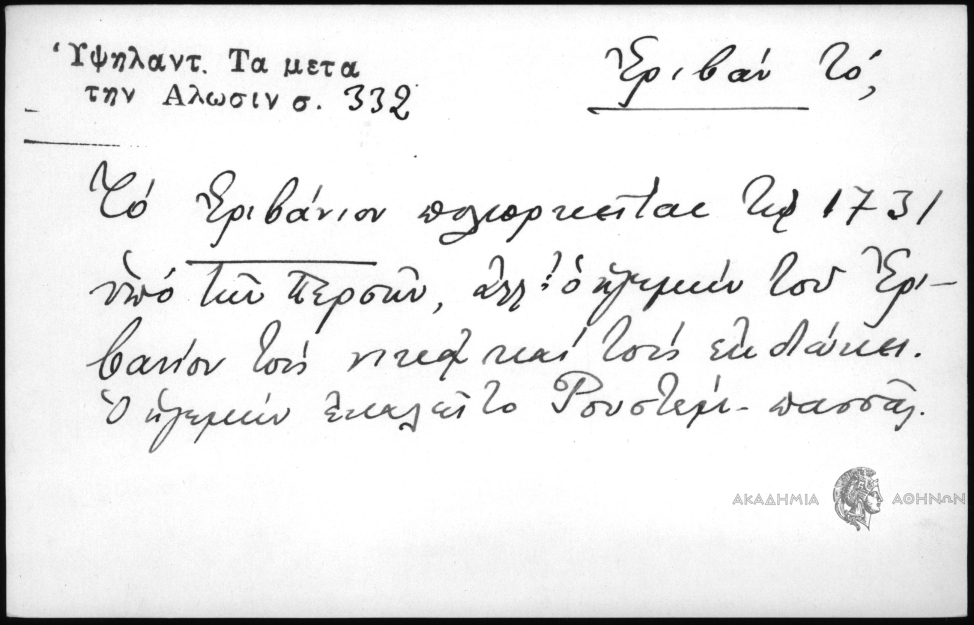 Ὑψηλαντ. Τα μετα
την Αλωσιν σ. 332
Ἐριβάν τό,
Τό Ἐριβάνιον πολιορκεῖται τῷ 1731
ὑπό τῶν Περσῶν, ἀλλ' ὁ ἡγεμών τοῦ Ἐρι-
βανίου τούς νικᾷ καί τούς ἐκδιώκει.
Ὁ ἡγεμών ἐκαλεῖτο Ρουστέμ-πασσᾶς.
ΑΚΑΔΗΜΙΑ ΑΘΗΝΩΝ